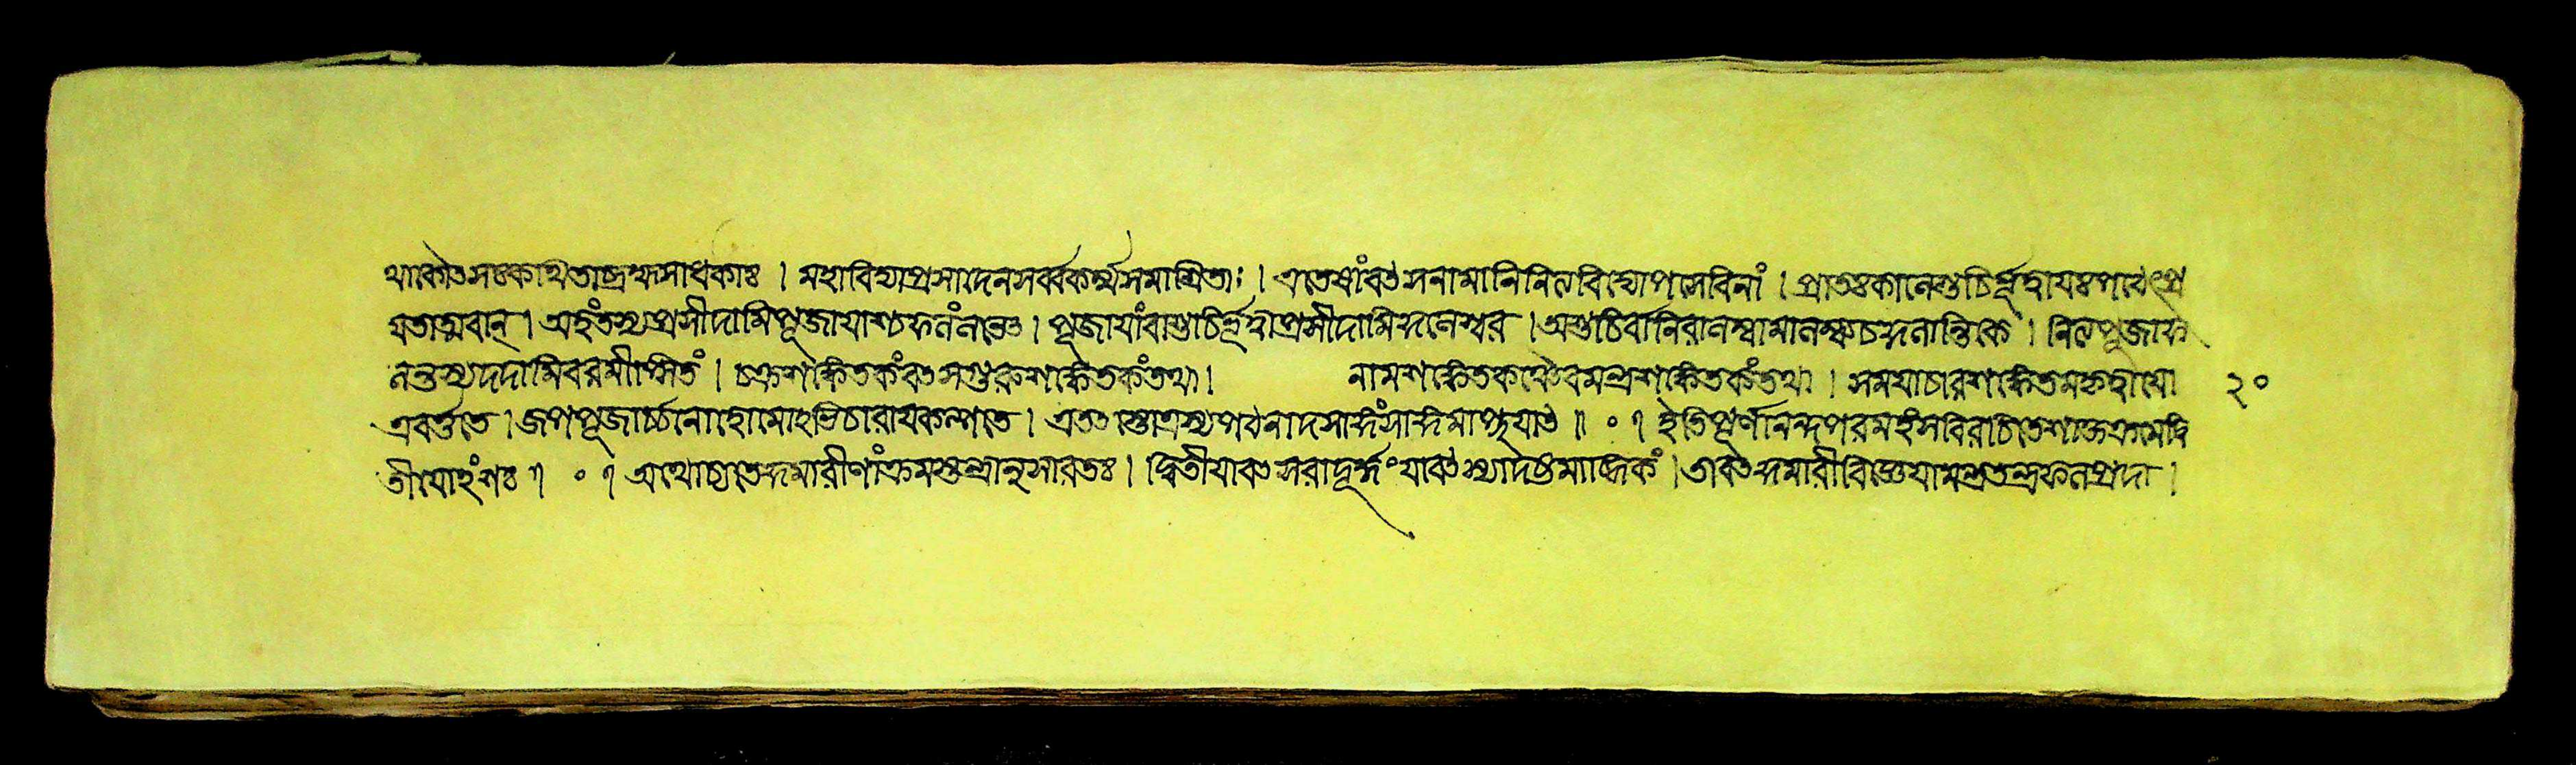 থাকৌতসঃকথিতাব্রহ্মসাধকাঃ । মহাবিদ্যাপ্রসাদেনসর্ব্বকর্ম্মসমাশ্রিতাঃ । এতেষাংবৎসনামানিনিত্যবিদ্যোপসেবিনাং । প্রাতঃকালেশুচির্ভূত্বাযঃপঠেৎপ্র
যতাত্মবান্ । অহংতস্যপ্রসীদামিপূজাযাশ্চফলংলভেৎ । পূজাযাংবাশুচির্ভূত্বাপ্রসীদামিকুলেশ্বর । অশুচির্বানিরালম্ব্য । নিত্যপূজাফ
লন্তস্যদদামিবরমীপ্সিতং । চক্রশঙ্কেতকংবৎসগুরুশঙ্কেতকংতথা । নামশঙ্কেতকঞ্চৈবমন্ত্রশঙ্কেতকংতথা । সমযাচারশঙ্কেতমকৃত্বাযো ২০
প্রবর্ত্ততে । জপপূজার্চ্চনাহোমোঽভিচারাযকল্পতে । এতৎস্তোত্রস্যপঠনাদসাঙ্গংসাঙ্গমাপ্নুযাৎ ॥ ० ॥ ইতিপূর্ণানন্দপরমহংসবিরচিতেশাক্তক্রমেদ্বি
তীযোঽংশঃ ॥ ० ॥ অথোচ্যতেকুমারীণাংক্রমস্তন্ত্রানুসারতঃ । দ্বিতীযাবৎসরাদূর্দ্ধংযাবৎস্যাদষ্টমাব্দিকং । তাবৎকুমারীবিজ্ঞেযামন্ত্রতন্ত্রফলপ্রদা ।